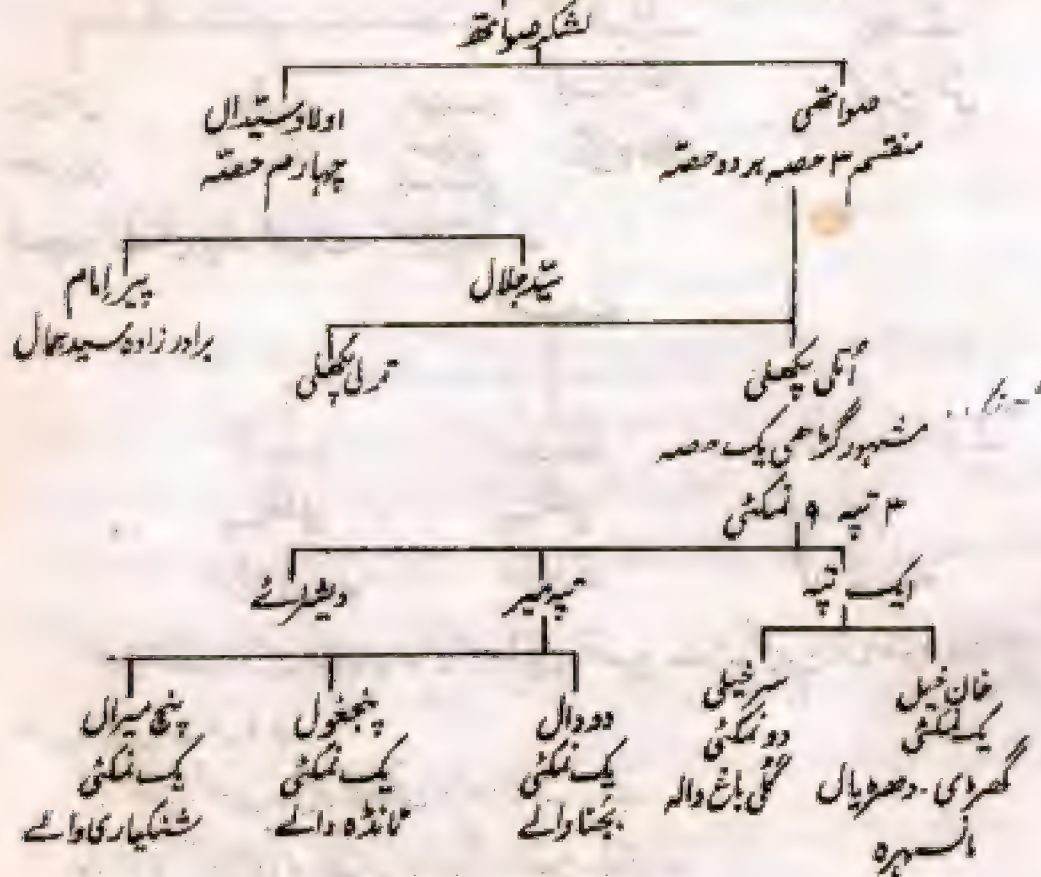 لشکر صواتھ
صواتھی
منقسم ۳ حصہ بر دو حصہ
اولاد سیدال
چہارم حصہ
سید جلال
پیر امام
برادر زادہ سید جمال
اتلی پکھلی
مشہور گڑھی یک حصہ
۳ تپہ ۹ نمکئی
ترلی پکھلی
ایک تپہ
تپہ میر
دیشرائے
خان خیل
یک نمکئی
گھڑی - دھڑیال
مانسہرہ
سرخیلی
دو نمکئی
گلی باغ والہ
دو دال
یک نمکئی
بجنا والے
پنجغول
یک نمکئی
ٹانڈہ والے
پنچ میرال
یک نمکئی
شنکیاری والے